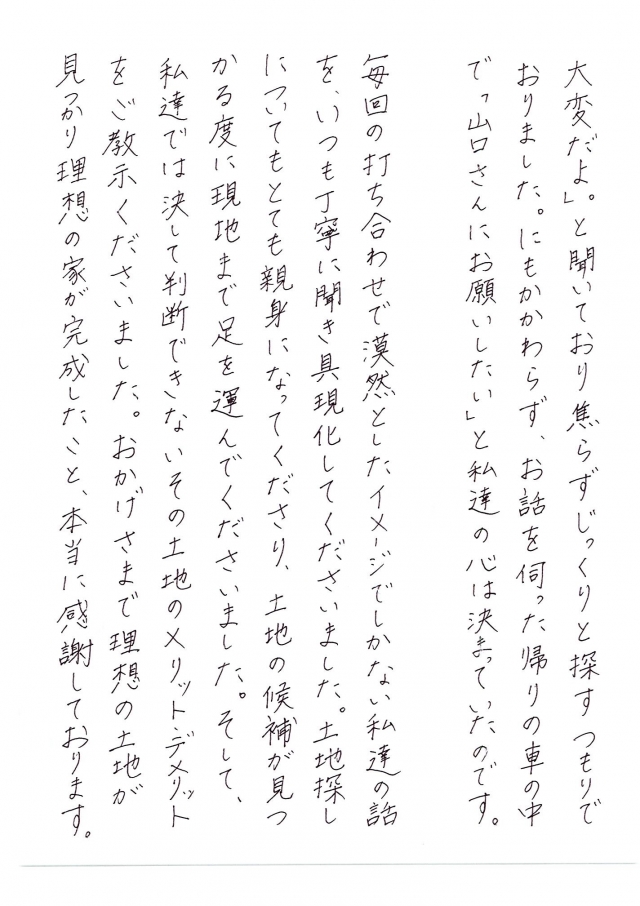 大変だよ」。と聞いており焦らずじっくりと探すつもりで
おりました。にもかかわらず、お話を伺った帰りの車の中
で「山口さんにお願いしたい」と私達の心は決まっていたのです。
毎回の打ち合わせで漠然としたイメージでしかない私達の話
を、いつも丁寧に聞き具現化してくださいました。土地探し
についてもとても親身になってくださり、土地の候補が見つ
かる度に現地まで足を運んでくださいました。そして、
私達では決して判断できないその土地のメリットデメリット
をご教示くださいました。おかげさまで理想の土地が
見つかり理想の家が完成したこと、本当に感謝しております。